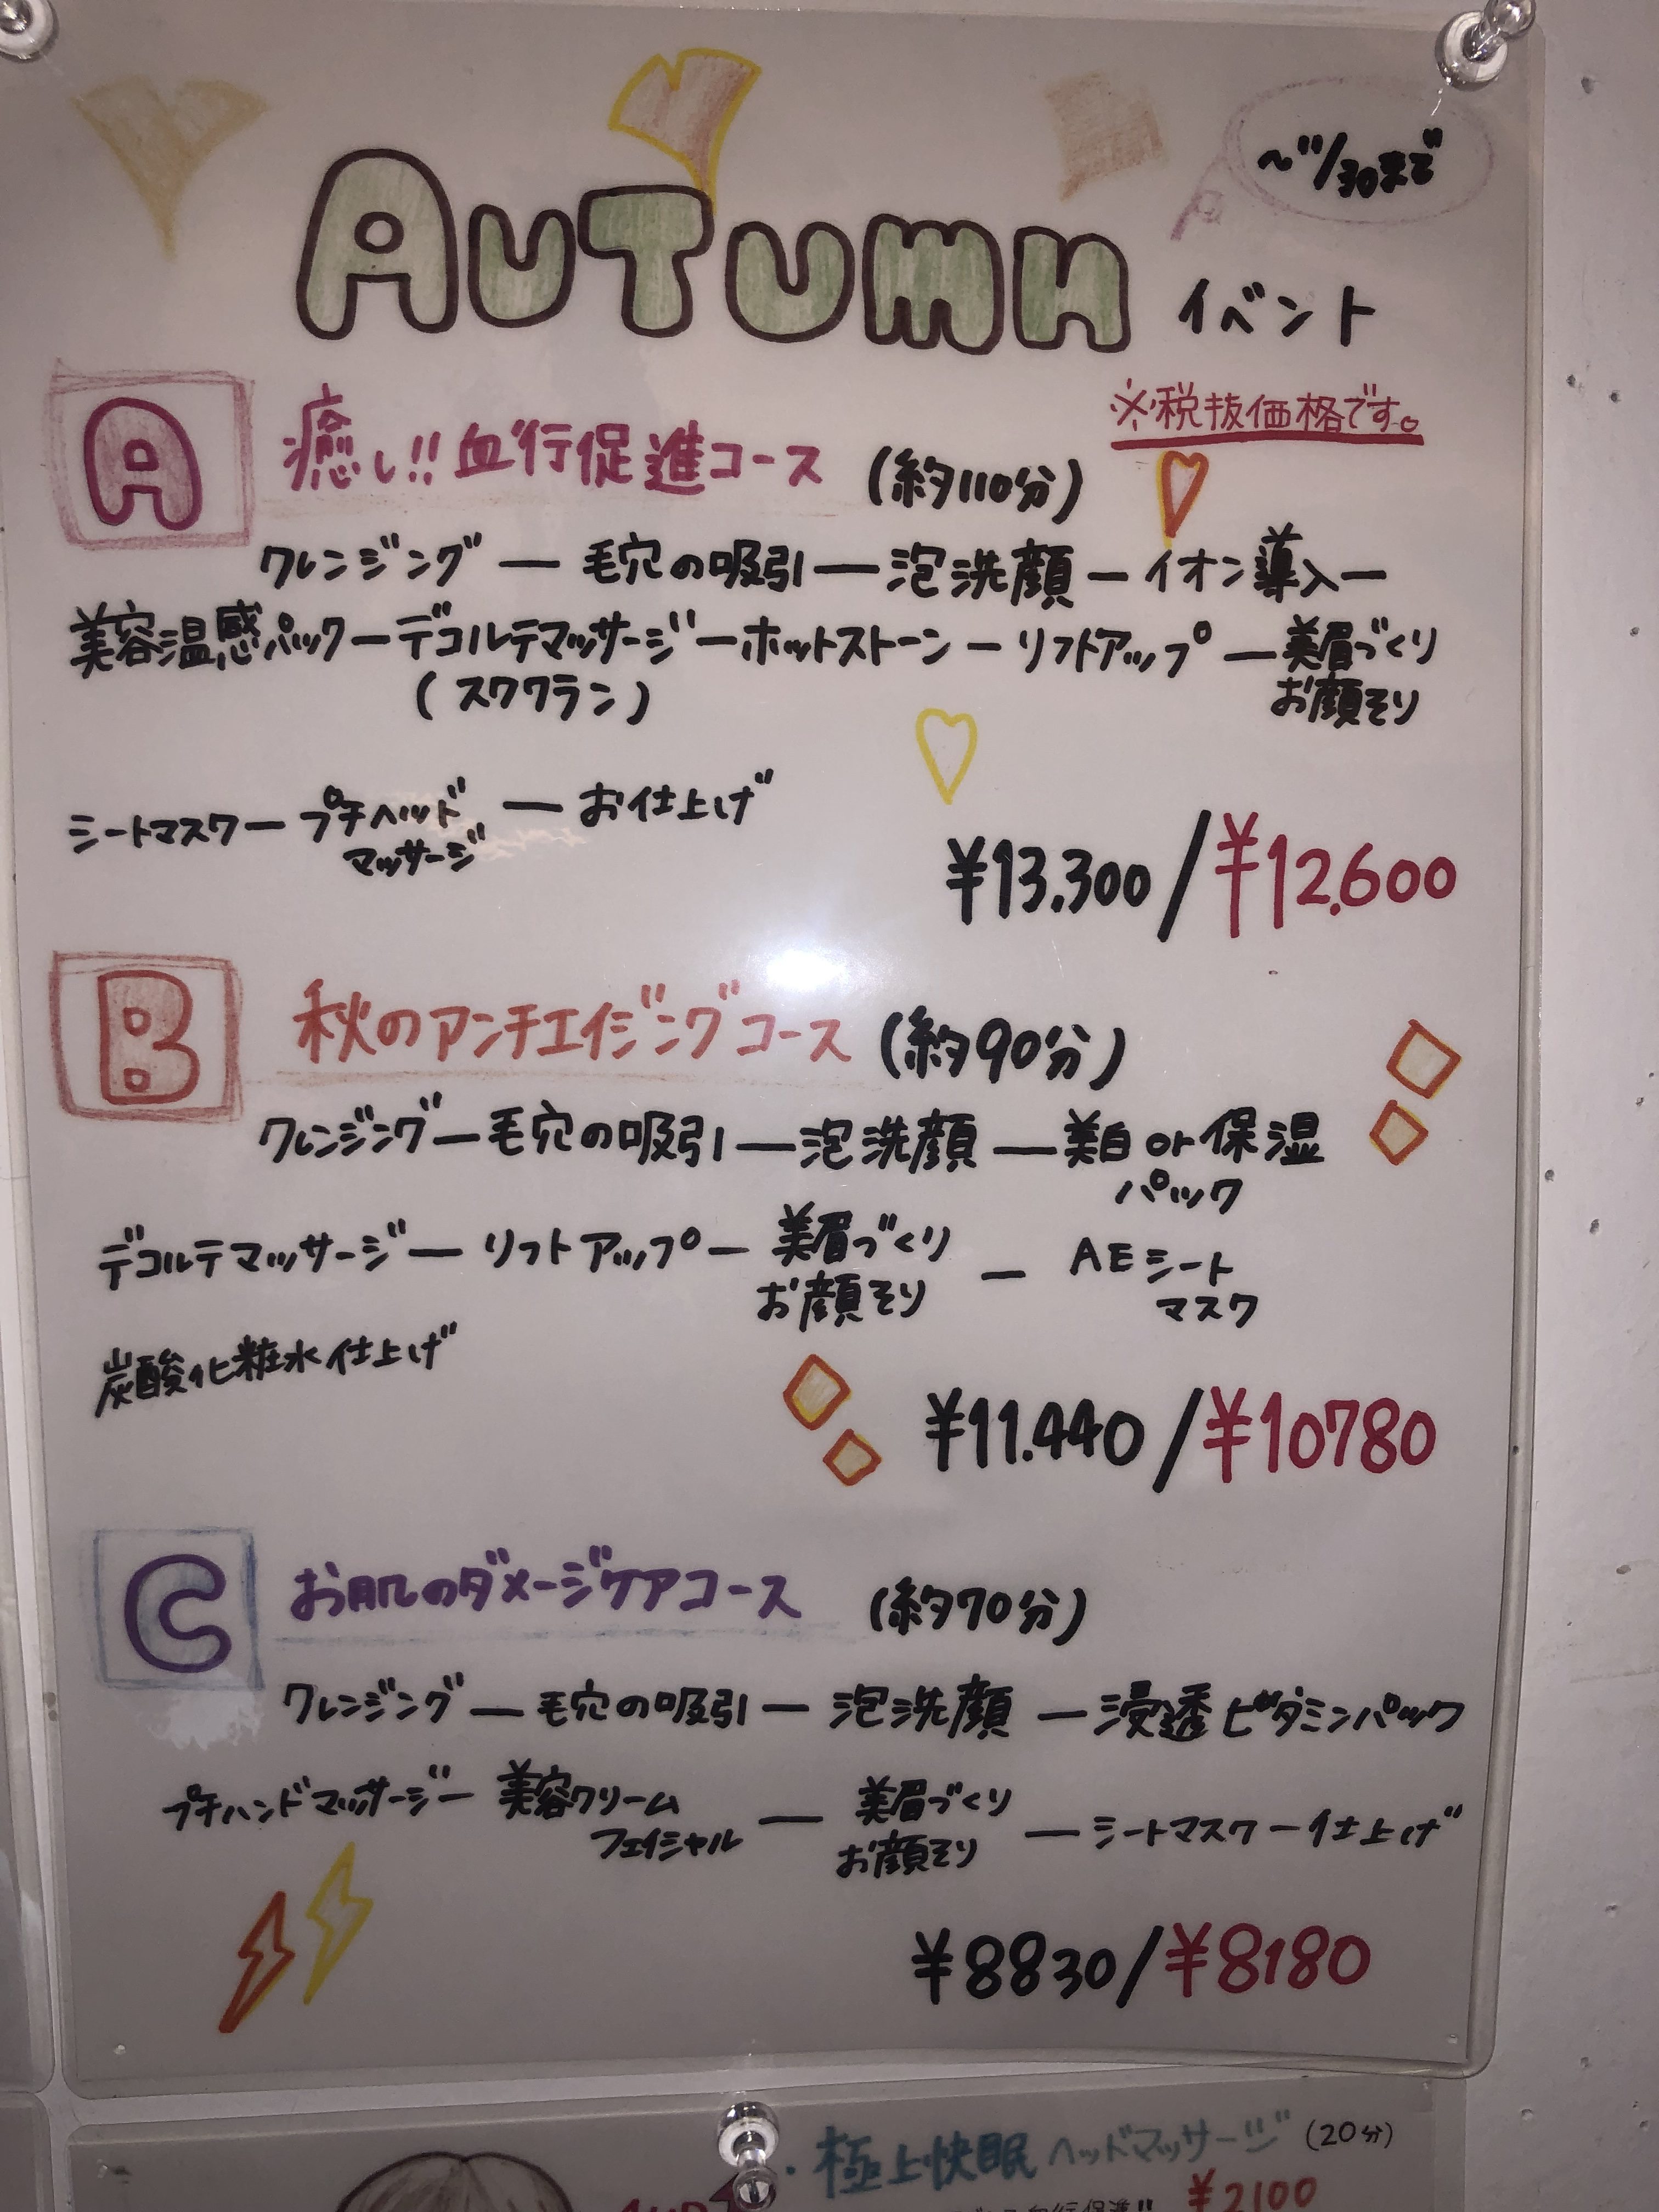 ~11/30まで
AUTUMN イベント
※税抜価格です。
A 癒し!!血行促進コース (約110分)
クレンジング ー 毛穴の吸引 ー 泡洗顔 ー イオン導入 ー
美容温感パック ー デコルテマッサージ ー ホットストーン ー リフトアップ ー 美眉づくり
(スクワラン) お顔そり
シートマスク ー プチヘッド ー お仕上げ
マッサージ
¥13.300 / ¥12.600
B 秋のアンチエイジングコース (約90分)
クレンジング ー 毛穴の吸引 ー 泡洗顔 ー 美白or保湿
パック
デコルテマッサージ ー リフトアップ ー 美眉づくり ー AEシート
お顔そり マスク
炭酸化粧水仕上げ
¥11.440 / ¥10780
C お肌のダメージケアコース (約70分)
クレンジング ー 毛穴の吸引 ー 泡洗顔 ー 浸透ビタミンパック
プチハンドマッサージ ー 美容クリーム ー 美眉づくり ー シートマスク ー 仕上げ
フェイシャル お顔そり
¥8830 / ¥8180
・極上快眠ヘッドマッサージ (20分)
¥2100